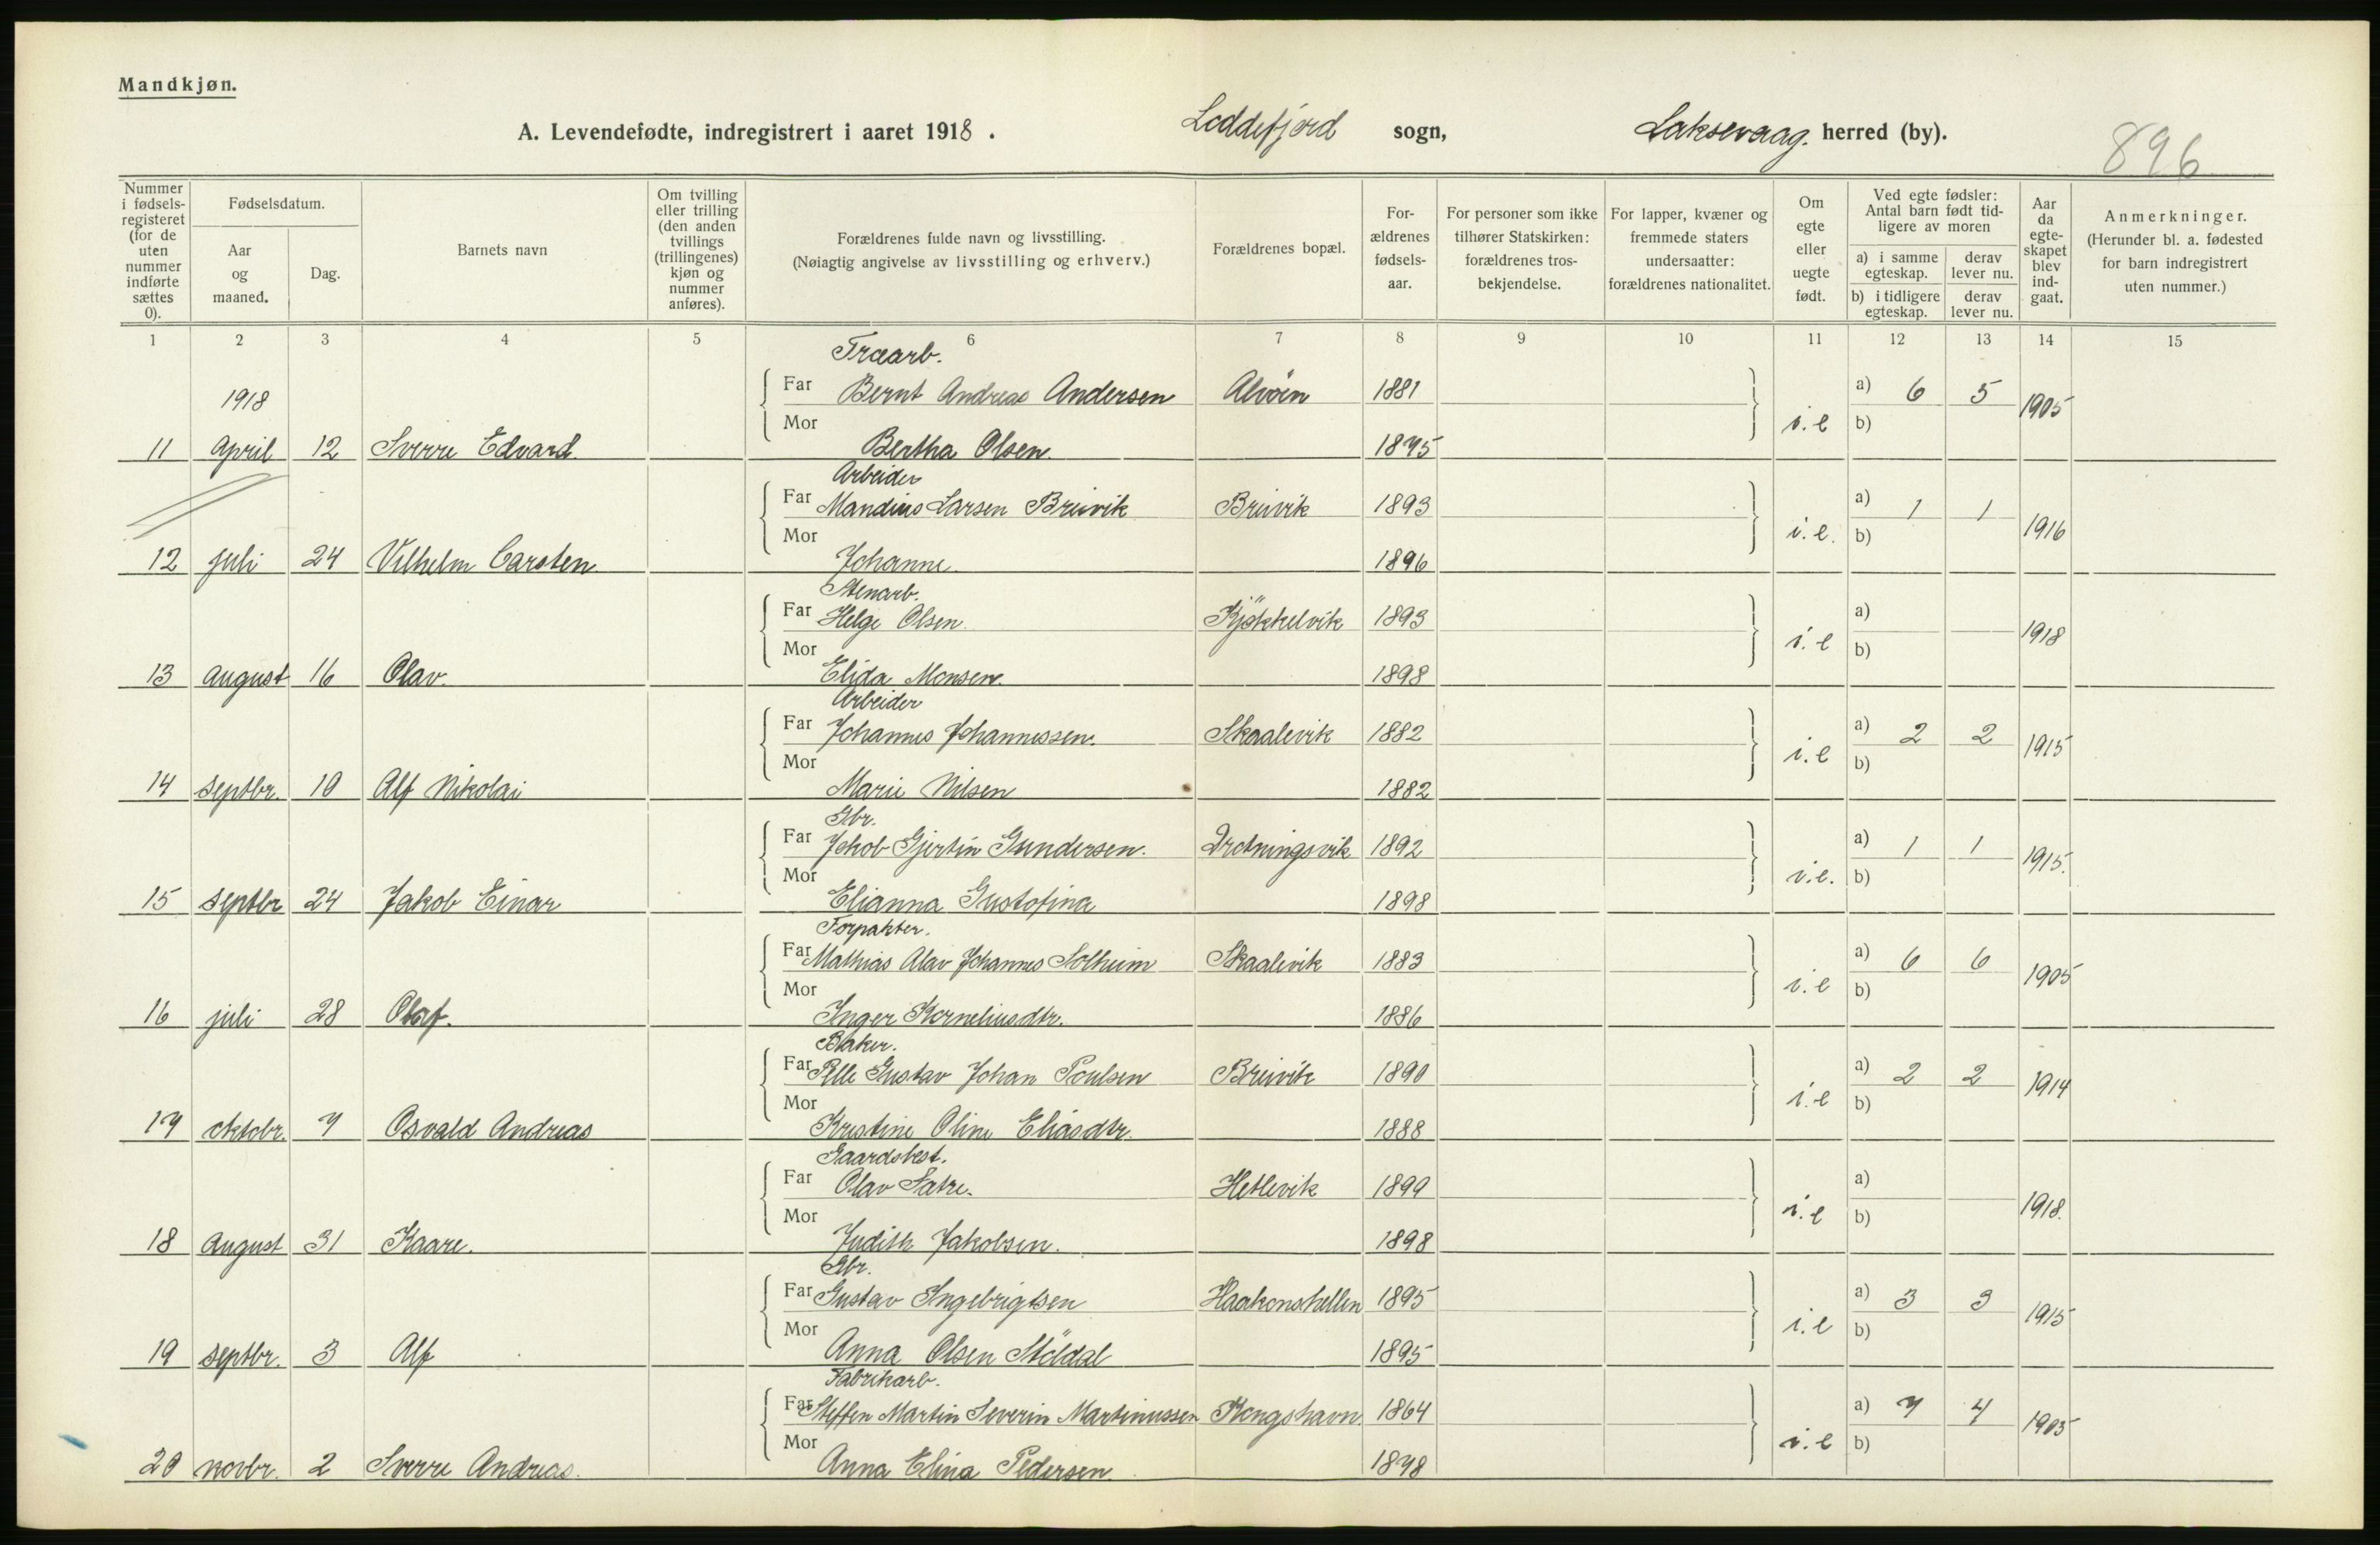 Mandkjøn.
A. Levendefødte, indregistrert i aaret 1918. Loddefjord sogn, Laksevaag. herred (by). 896
Nummer i fødselsregisteret (for de uten nummer indførte sættes 0). Fødselsdatum. Aar og maaned. Dag. Barnets navn Om tvilling eller trilling (den anden tvillings (trillingenes) kjøn og nummer anføres). Forældrenes fulde navn og livsstilling. (Nøiagtig angivelse av livsstilling og erhverv.) Forældrenes bopæl. Forældrenes fødselsaar. For personer som ikke tilhører Statskirken: forældrenes trosbekjendelse. For lapper, kvæner og fremmede staters undersaatter: forældrenes nationalitet. Om egte eller uegte født. Ved egte fødsler: Antal barn født tidligere av moren a) i samme egteskap. derav lever nu. b) i tidligere egteskap. derav lever nu. Aar da egteskapet blev indgaat. Anmerkninger. (Herunder bl. a. fødested for barn indregistrert uten nummer.)
1 2 3 4 5 6 7 8 9 10 11 12 13 14 15
Træarb.
1918 Far Bernt Andreas Andersen Alvöen 1881 a) 6 5 1905
11 April 12 Sverre Edvard. Mor Bertha Olsen. 1875 i.e b)
Arbeider
Far Mandius Larsen Breivik Breivik 1893 a) 1 1 1916
12 juli 24 Vilhelm Carsten. Mor Johanne. 1896 i.e. b)
Stenarb.
Far Helge Olsen. Kjökkelvik 1893 a) 1918
13 August 16 Olav. Mor Elida Monsen. 1898 i.e b)
Arbeider
Far Johannes Johannessen. Skaalevik 1882 a) 2 2 1915
14 Septbr. 10 Alf Nikolai Mor Marie Nilsen 1882 i.e b)
Gbr.
Far Jakob Gjertin Gundersen. Drotningsvik 1892 a) 1 1 1915.
15 Septbr 24 Jakob Einar Mor Elianna Gustofina 1898 i.e. b)
Forpakter.
Far Mathias Olav Johannes Solheim Skaalevik 1883 a) 6 6 1905
16 juli 28 Olaf. Mor Inger Korneliusdtr. 1886 i.e b)
Baker.
Far Pelle Gustav Johan Poulsen Breivik 1890 a) 2 2 1914
17 oktobr. 7 Osvald Andreas Mor Kristine Oline Eliasdtr. 1888 i.e b)
Gaardsbest.
Far Olav Satre. Hetlevik 1899 a) 1918.
18 August 31 Kaare. Mor Judith Jakobsen. 1898 i.e b)
Gbr.
Far Gustav Ingebrigtsen Haakonshellen 1895 a) 3 3 1915
19 Septbr. 3 Alf Mor Anna Olsen Stöldal 1895 i.e b)
Fabrikarb.
Far Steffen Martin Severin Martinussen Kongshavn. 1864 a) 7 4 1905
20 novbr. 2 Sverre Andreas. Mor Anna Elina Pedersen 1878 i.e b)